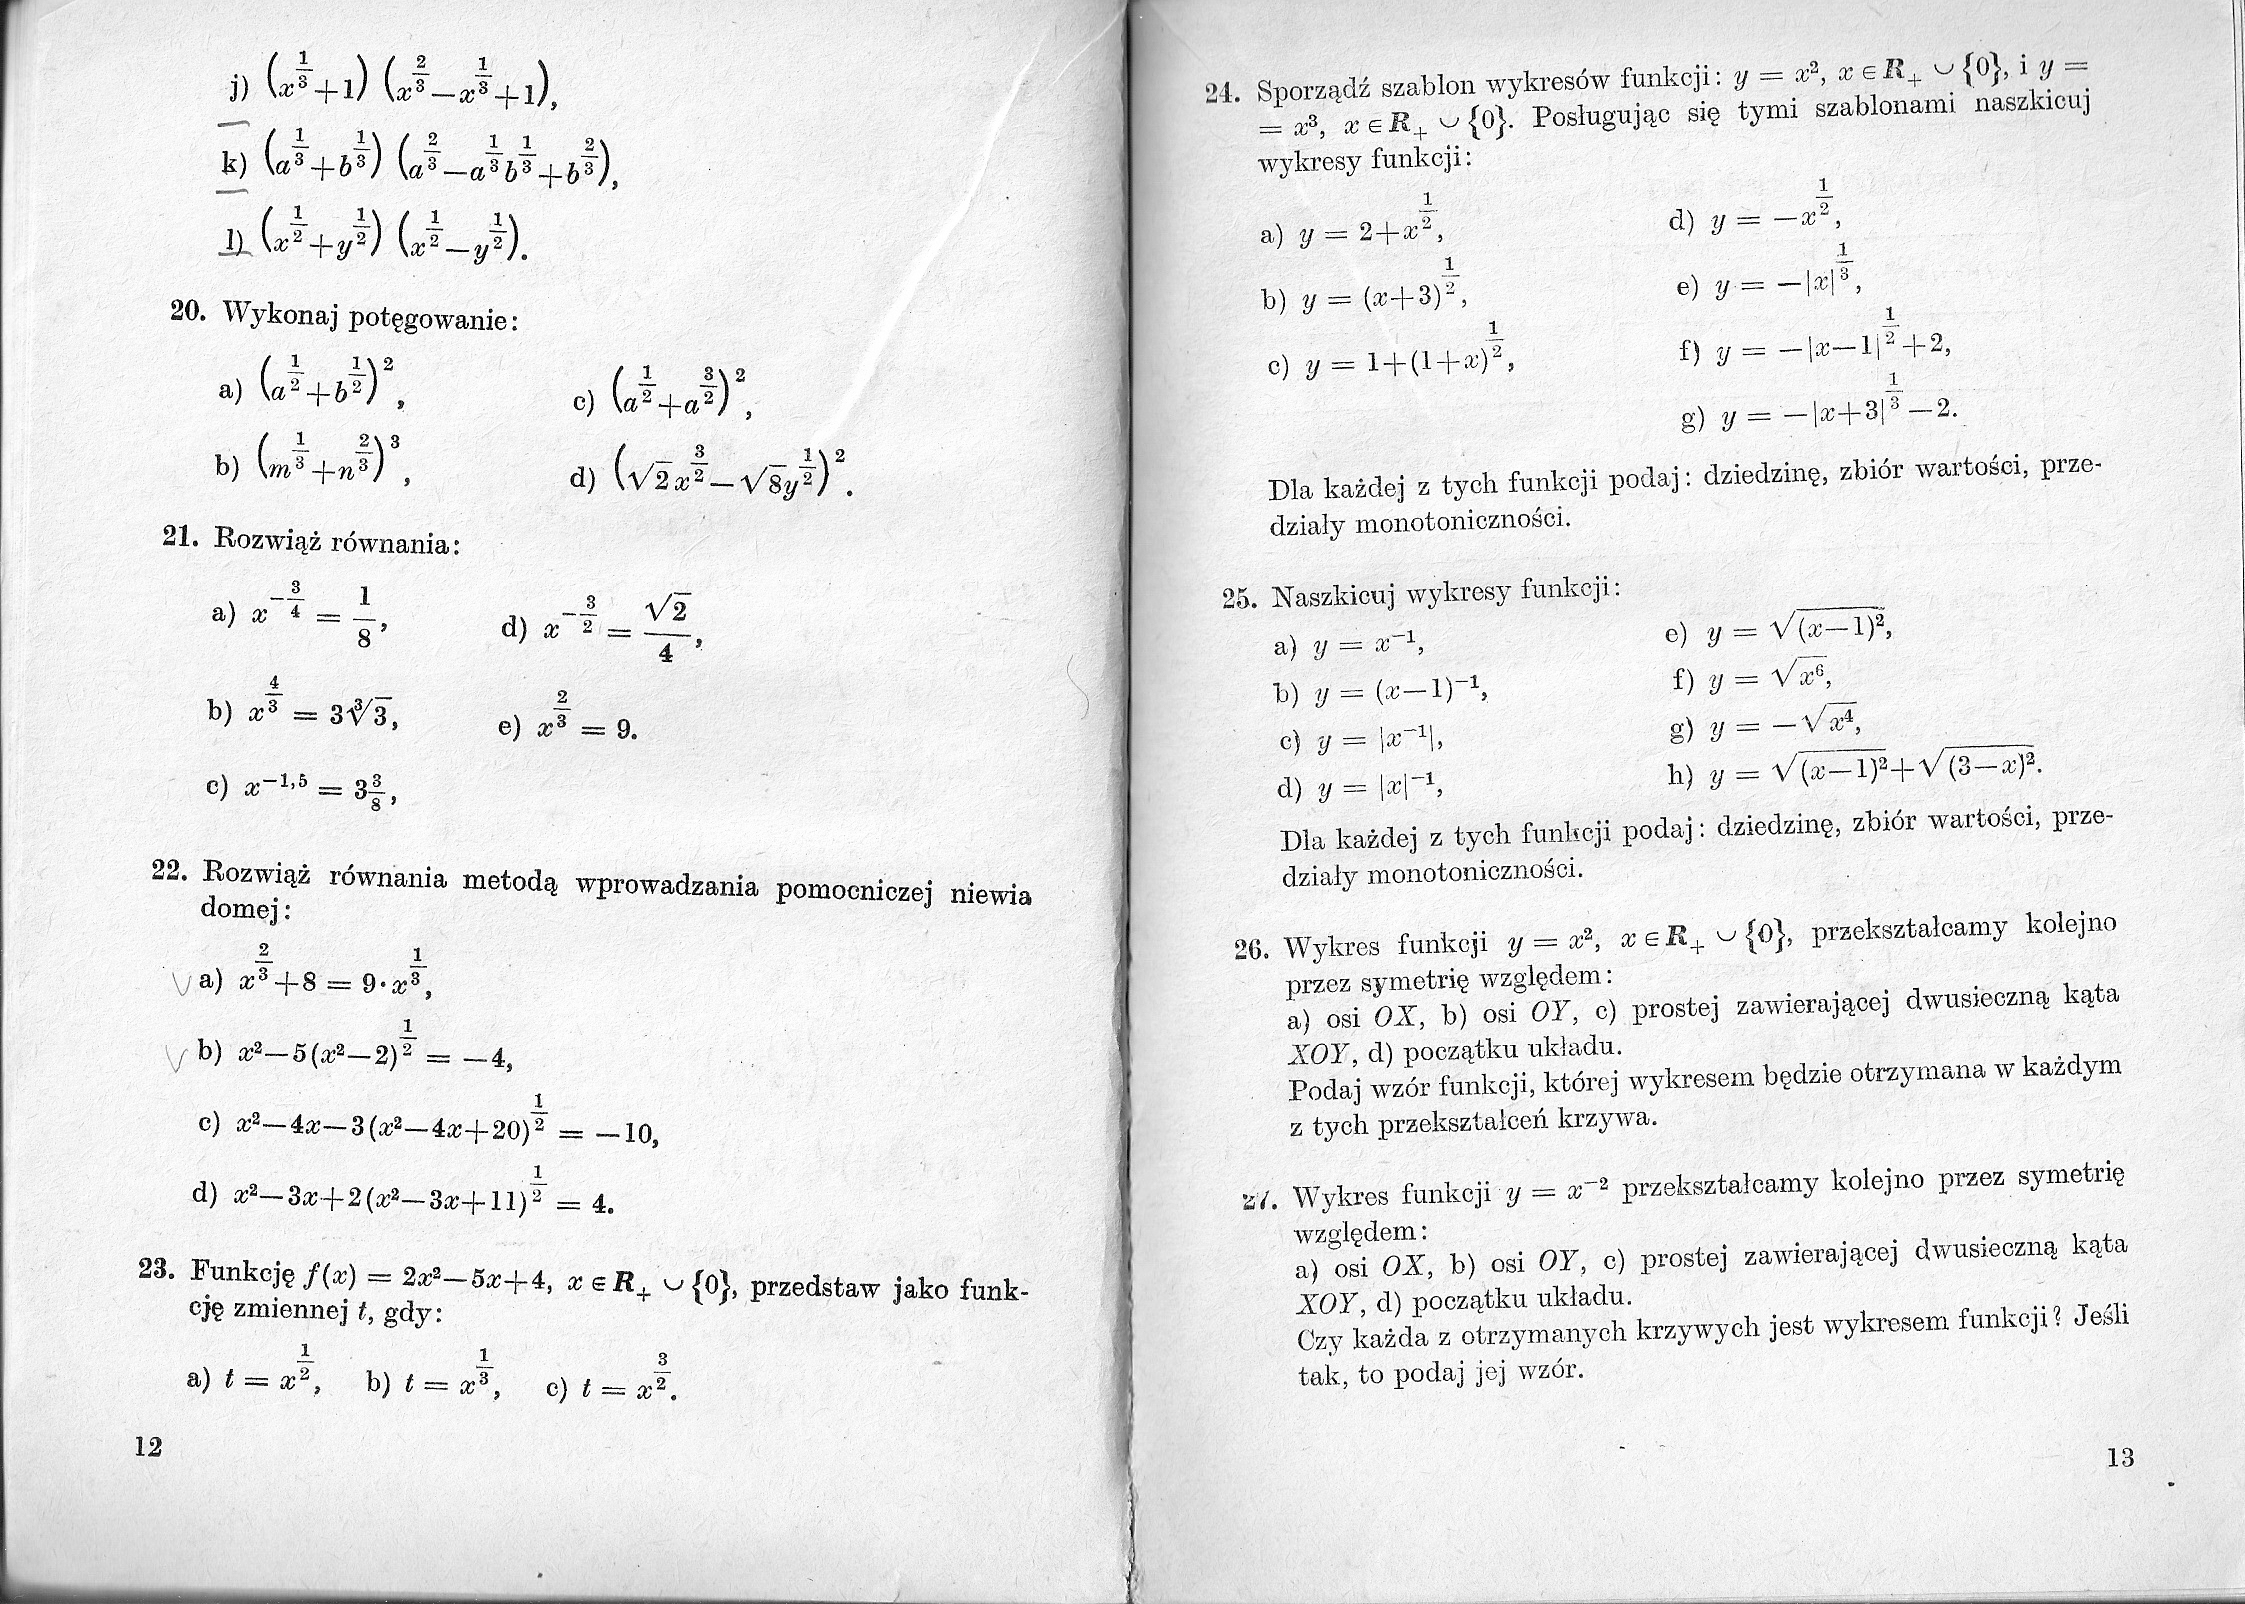 j) (x^{1/3}+1) (x^{2/3}—x^{1/3}+1),
k) (a^{1/3}+b^{1/3}) (a^{2/3}—a^{1/3}b^{1/3}+b^{2/3}),
l) (x^{1/2}+y^{1/2}) (x^{1/2}—y^{1/2}).
20. Wykonaj potęgowanie:
a) (a^{1/2}+b^{1/2})²,
c) (a^{1/2}+a^{3/2})²,
b) (m^{1/3}+n^{2/3})³,
d) (√2x^{3/2}—√8y^{1/2})².
21. Rozwiąż równania:
a) x^{-3/4} = 1/8,
d) x^{-3/2} = √2/4,
b) x^{4/3} = 3∛3,
e) x^{2/3} = 9.
c) x^{-1,5} = 3 3/8,
22. Rozwiąż równania metodą wprowadzania pomocniczej niewia
domej:
a) x^{2/3}+8 = 9·x^{1/3},
b) x²—5(x²—2)^{1/2} = —4,
c) x²—4x—3(x²—4x+20)^{1/2} = —10,
d) x²—3x+2(x²—3x+11)^{1/2} = 4.
23. Funkcję f(x) = 2x²—5x+4, x ∈ R₊ ∪ {0}, przedstaw jako funk-
cję zmiennej t, gdy:
a) t = x^{1/2}, b) t = x^{1/3}, c) t = x^{3/2}.
12
24. Sporządź szablon wykresów funkcji: y = x², x ∈ R₊ ∪ {0}, i y =
= x³, x ∈ R₊ ∪ {0}. Posługując się tymi szablonami naszkicuj
wykresy funkcji:
a) y = 2+x^{1/2},
d) y = —x^{1/2},
b) y = (x+3)^{1/2},
e) y = —|x|^{1/3},
c) y = 1+(1+x)^{1/2},
f) y = —|x—1|^{1/2}+2,
g) y = —|x+3|^{1/3}—2.
Dla każdej z tych funkcji podaj: dziedzinę, zbiór wartości, prze-
działy monotoniczności.
25. Naszkicuj wykresy funkcji:
a) y = x⁻¹,
e) y = √(x—1)²,
b) y = (x—1)⁻¹,
f) y = √x⁶,
c) y = |x⁻¹|,
g) y = —√x⁴,
d) y = |x|⁻¹,
h) y = √(x—1)²+√(3—x)².
Dla każdej z tych funkcji podaj: dziedzinę, zbiór wartości, prze-
działy monotoniczności.
26. Wykres funkcji y = x², x ∈ R₊ ∪ {0}, przekształcamy kolejno
przez symetrię względem:
a) osi OX, b) osi OY, c) prostej zawierającej dwusieczną kąta
XOY, d) początku układu.
Podaj wzór funkcji, której wykresem będzie otrzymana w każdym
z tych przekształceń krzywa.
27. Wykres funkcji y = x⁻² przekształcamy kolejno przez symetrię
względem:
a) osi OX, b) osi OY, c) prostej zawierającej dwusieczną kąta
XOY, d) początku układu.
Czy każda z otrzymanych krzywych jest wykresem funkcji? Jeśli
tak, to podaj jej wzór.
13